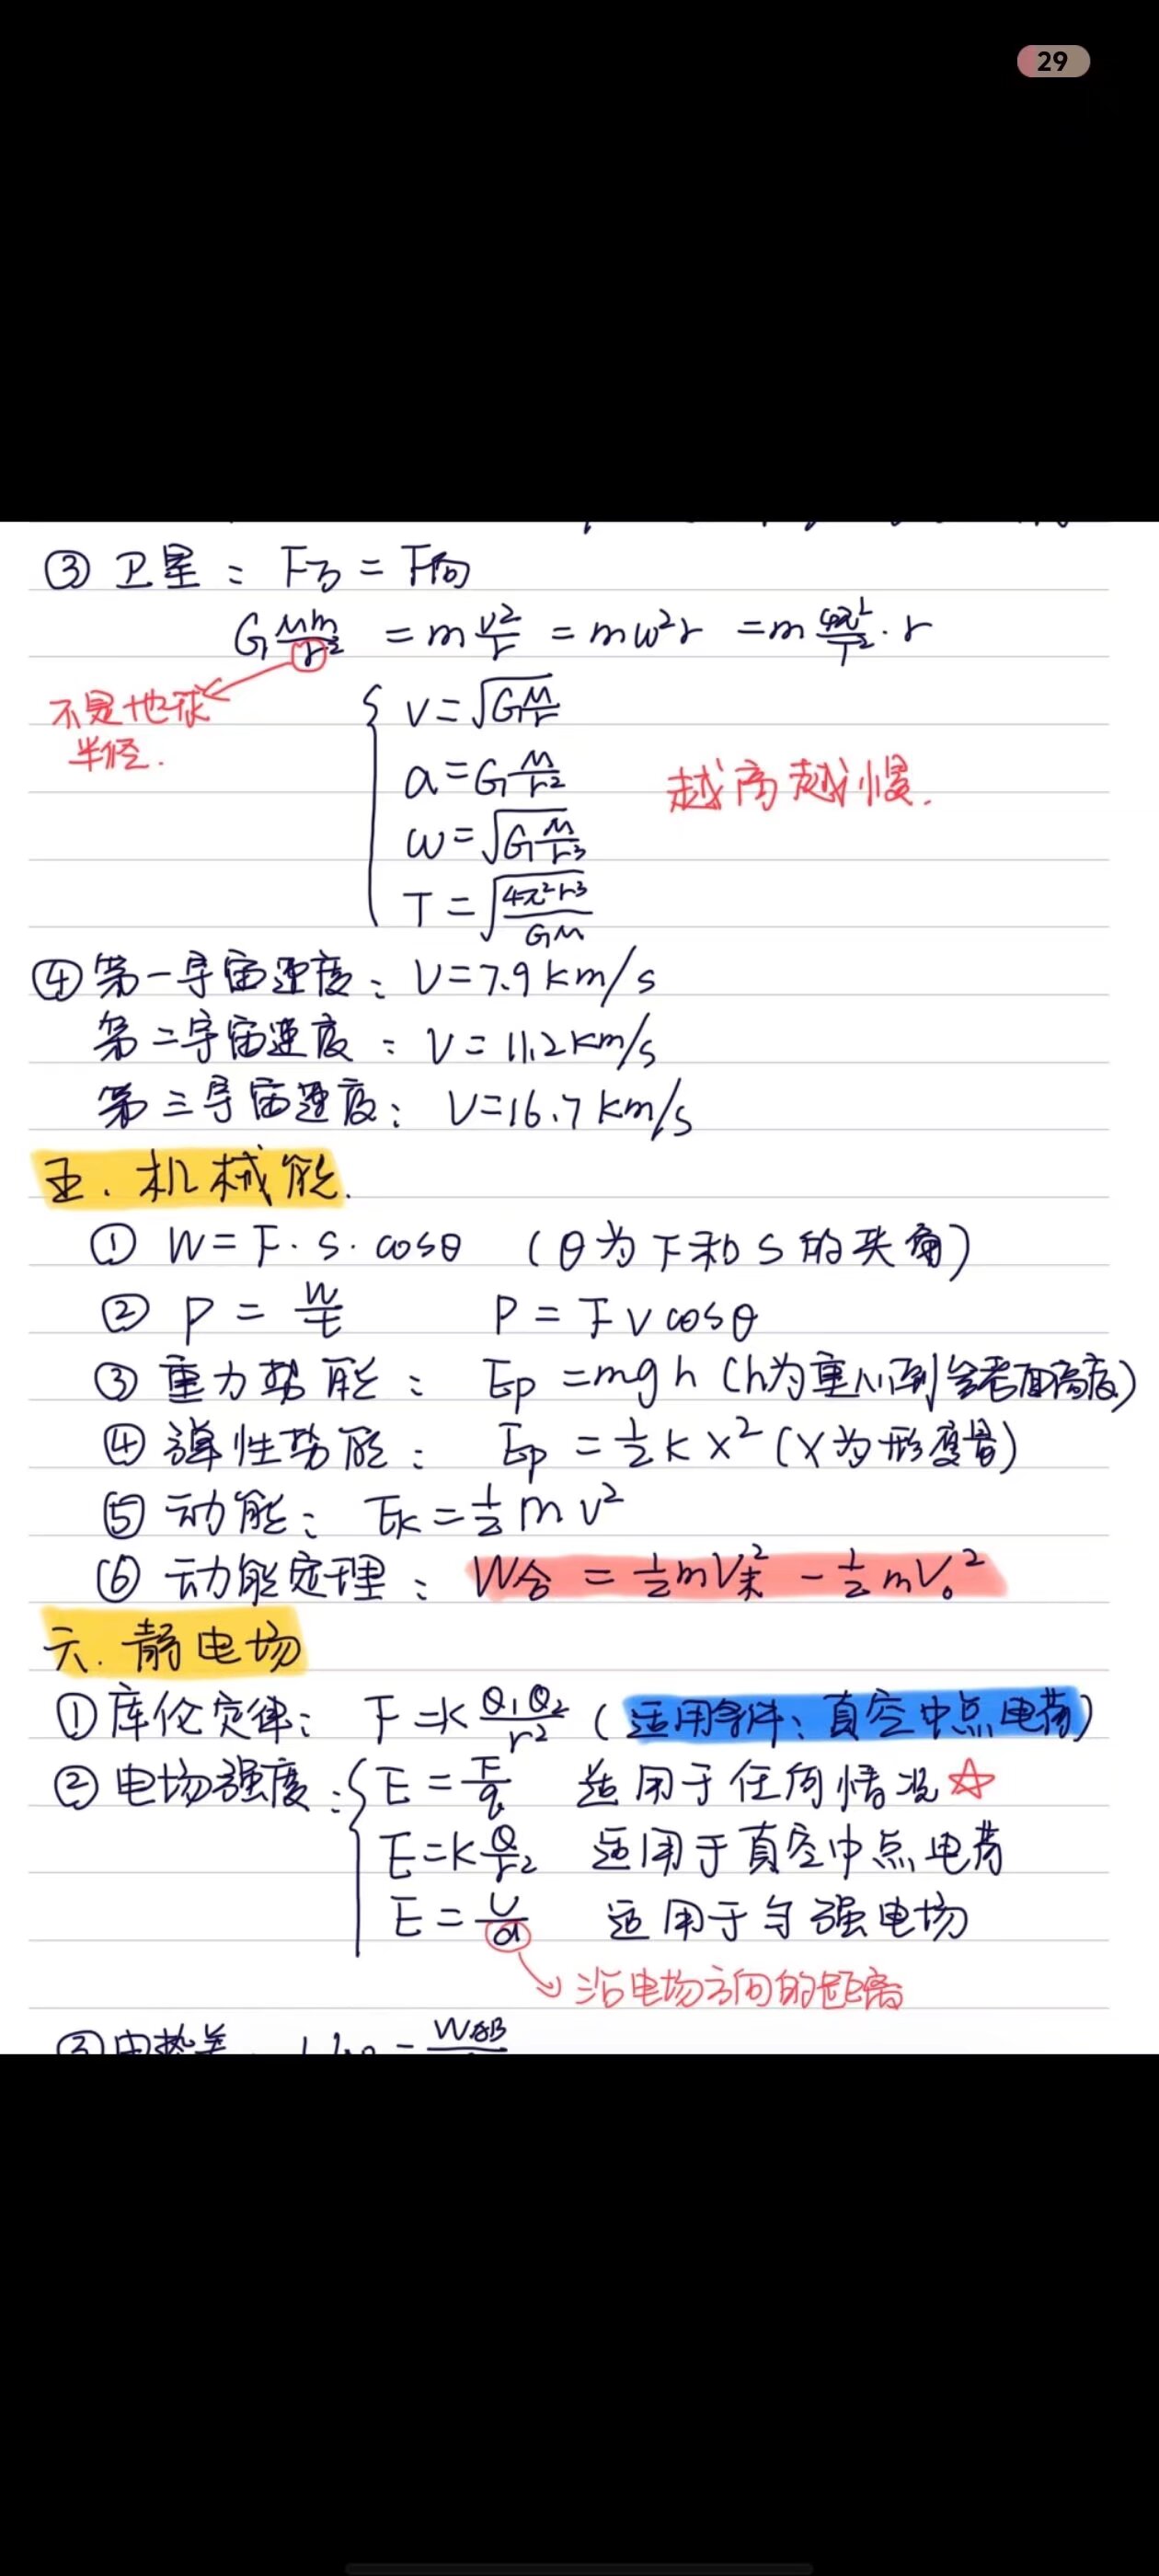 29
③ 卫星：F万 = F向
G Mm/r² = m v²/r = mω²r = m 4π²/T² · r
不是地球
半径.
v = √(G M/r)
a = G M/r²
越高越慢.
ω = √(G M/r³)
T = √(4π²r³/GM)
④ 第一宇宙速度：V=7.9km/s
第二宇宙速度：V=11.2km/s
第三宇宙速度：V=16.7km/s
五. 机械能.
① W = F·s·cosθ （θ为F和s的夹角）
② P = W/t P = Fvcosθ
③ 重力势能：Ep = mgh（h为重心到参考面高度）
④ 弹性势能：Ep = ½kx²（x为形变量）
⑤ 动能：Ek = ½mv²
⑥ 动能定理：W合 = ½mV末² - ½mV₀²
六. 静电场
① 库伦定律：F = k Q₁Q₂/r²（适用条件：真空中点电荷）
② 电场强度：E = F/q 适用于任何情况☆
E = k Q/r² 适用于真空中点电荷
E = U/d 适用于匀强电场
沿电场方向的距离
③ 电势差